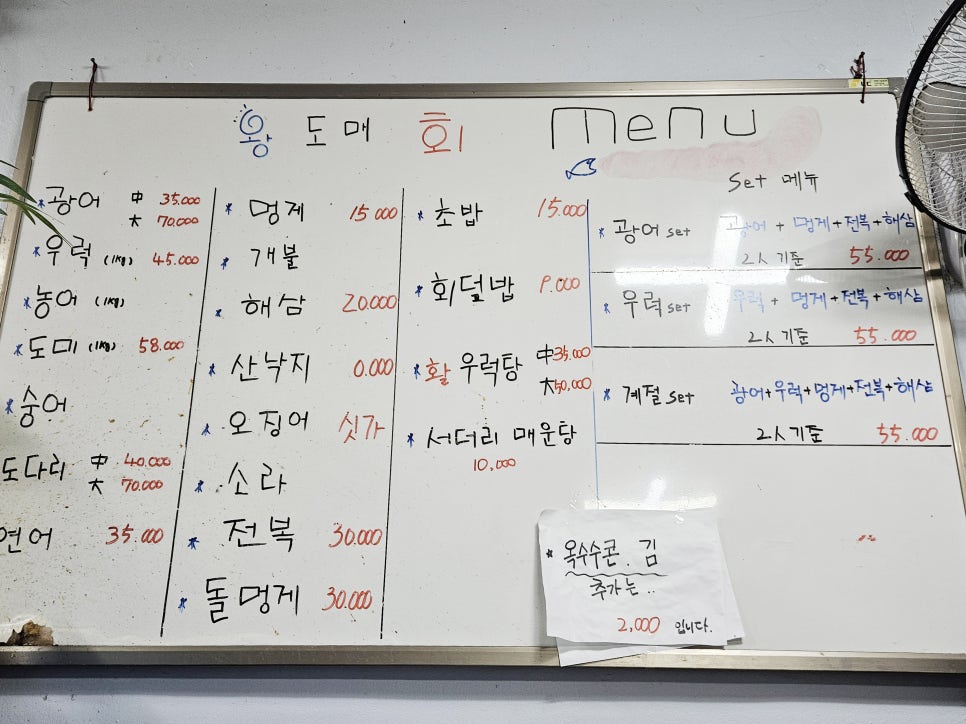 왕 도매 회 menu
*광어 中 35.000
大 70.000
*우럭 (1kg) 45.000
*농어 (1kg)
*도미 (1kg) 58.000
*숭어
도다리 中 40.000
大 70.000
연어 35.000
* 멍게 15.000
* 개불
* 해삼 20.000
* 산낙지 0.000
* 오징어 싯가
* 소라
* 전복 30.000
* 돌멍게 30.000
* 초밥 15.000
* 회덮밥 9.000
* 활 우럭탕 中 35.000
大 50,000
* 서더리 매운탕
10,000
Set 메뉴
* 광어 set 광어 + 멍게 + 전복 + 해삼
2人 기준 55.000
* 우럭 set 우럭 + 멍게 + 전복 + 해삼
2人 기준 55.000
* 계절 set 광어+우럭+멍게+전복+해삼
2人 기준 55.000
* 옥수수콘. 김
추가는..
2,000 입니다.